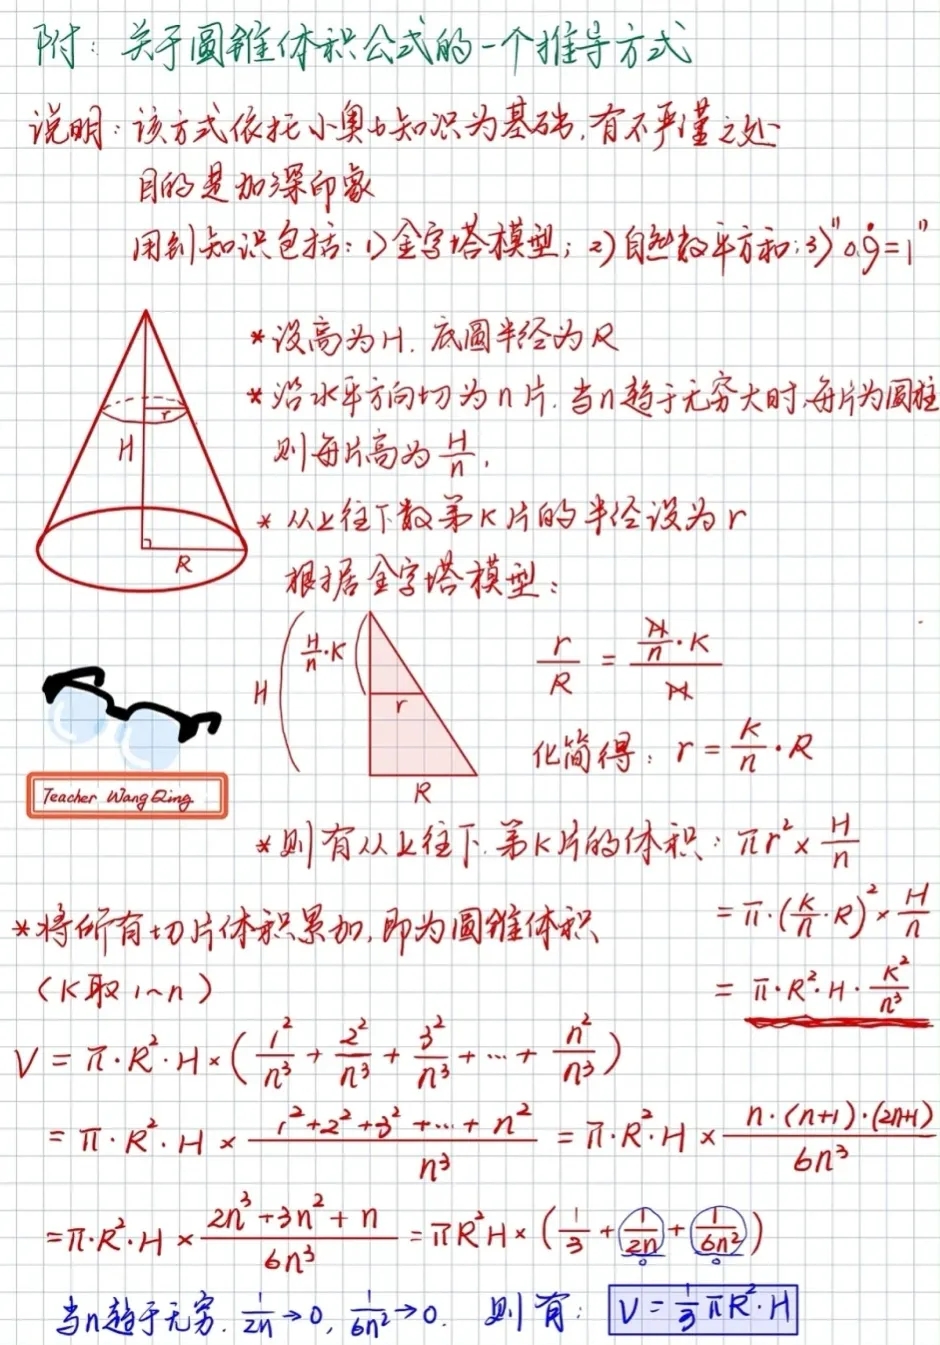 附：关于圆锥体积公式的一个推导方式
说明：该方式依托小奥与知识为基础，有不严谨之处
目的是加深印象
用到知识包括：1）金字塔模型；2）自然数平方和；3）"0.9̇=1"
*设高为H．底圆半径为R
*沿水平方向切为n片．当n趋于无穷大时，每片为圆柱
则每片高为 H/n，
*从上往下数第K片的半径设为r
根据金字塔模型：
H
r
R
H
H/n·K
r
R
r/R = (H/n·K)/H
化简得：r = K/n · R
Teacher WangQing
*则有从上往下．第K片的体积：πr²×H/n
= π·(K/n·R)²×H/n
= π·R²·H·K²/n³
*将所有切片体积累加，即为圆锥体积
（K取1~n）
V = π·R²·H×(1²/n³ + 2²/n³ + 3²/n³ + … + n²/n³)
= π·R²·H × (1²+2²+3²+…+n²)/n³ = π·R²·H × n·(n+1)·(2n+1)/6n³
=π·R²·H × (2n³+3n²+n)/6n³ = πR²H×(1/3 + 1/2n + 1/6n²)
0 0
当n趋于无穷．1/2n→0，1/6n²→0．则有：V=1/3πR²·H